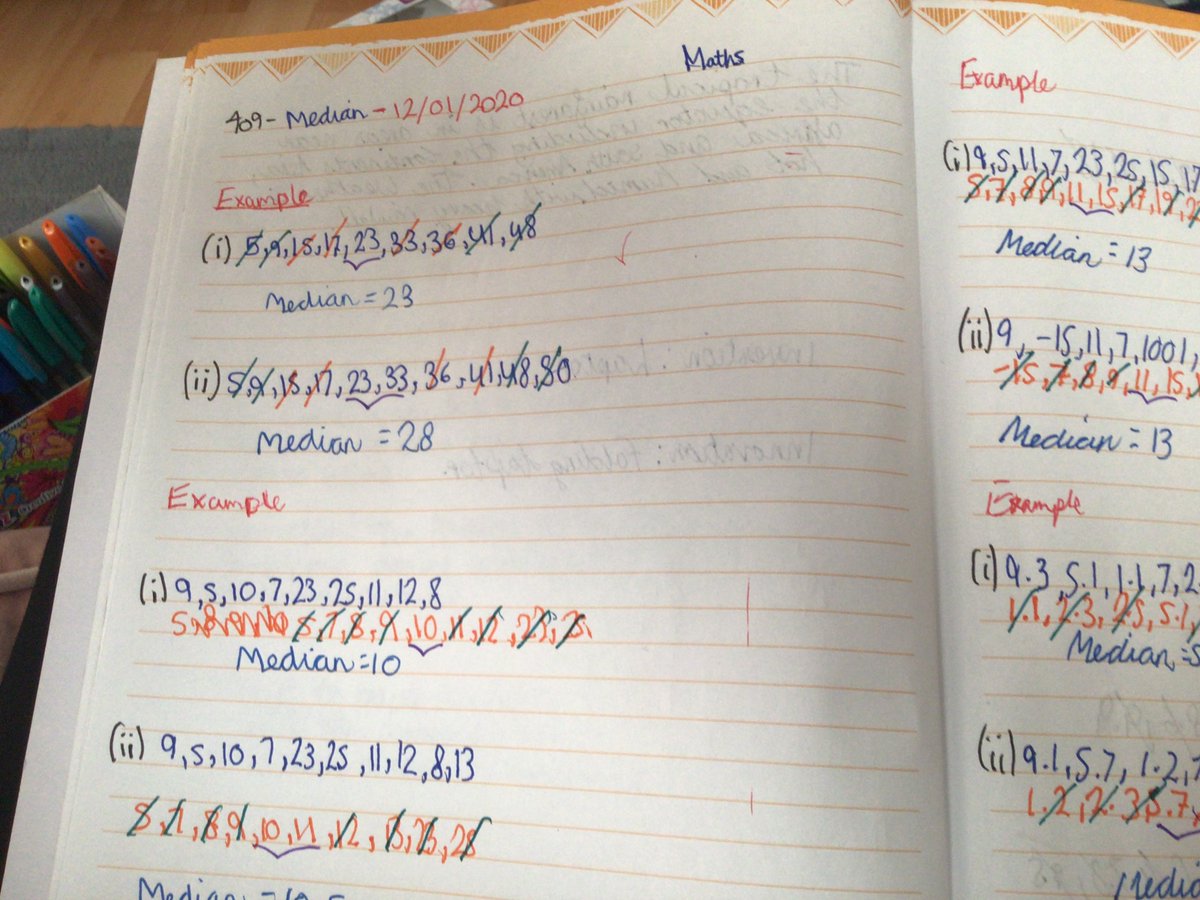 Maths
409 - Median - 12/01/2020
Example
(i) 5, 9, 15, 17, 23, 33, 36, 41, 48
Median = 23
(ii) 5, 9, 15, 17, 23, 33, 36, 41, 48, 80
Median = 28
Example
(i) 9, 5, 10, 7, 23, 25, 11, 12, 8
5, 7, 8, 9, 10, 11, 12, 23, 25,
Median = 10
(ii) 9, 5, 10, 7, 23, 25, 11, 12, 8, 13
5, 7, 8, 9, 10, 11, 12, 13, 23, 25
Median
Example
(i) 9, 5, 11, 7, 23, 25, 15, 17
5, 7, 8, 9, 11, 15, 17, 19,
Median = 13
(ii) 9, -15, 11, 7, 1001,
-15, 7, 8, 9, 11, 15,
Median = 13
Example
(i) 9.3, 5.1, 1.1, 7, 2
1.1, 2.3, 2.5, 5.1,
Median =
(ii) 9.1, 5.7, 1.2, 7
1.2, 2.3, 5.7,
Median